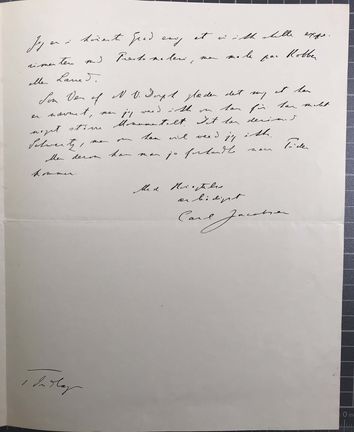 Jeg er i høieste Grad enig at vi ikke skulle expe-
rimentere med Freskomaleri, men male paa Kobber
eller Lærred.
Som Ven af N V Dorph glæder det mig at han
er nævnt, men jeg veed ikke om han før har malt
noget større Monumentalt. Det har derimod
Schwartz, men om han vil veed jeg ikke.
Men derom kan man jo forhandle naar Tiden
kommer.
Med Høiagtelse
ærbødigst
Carl Jacobsen